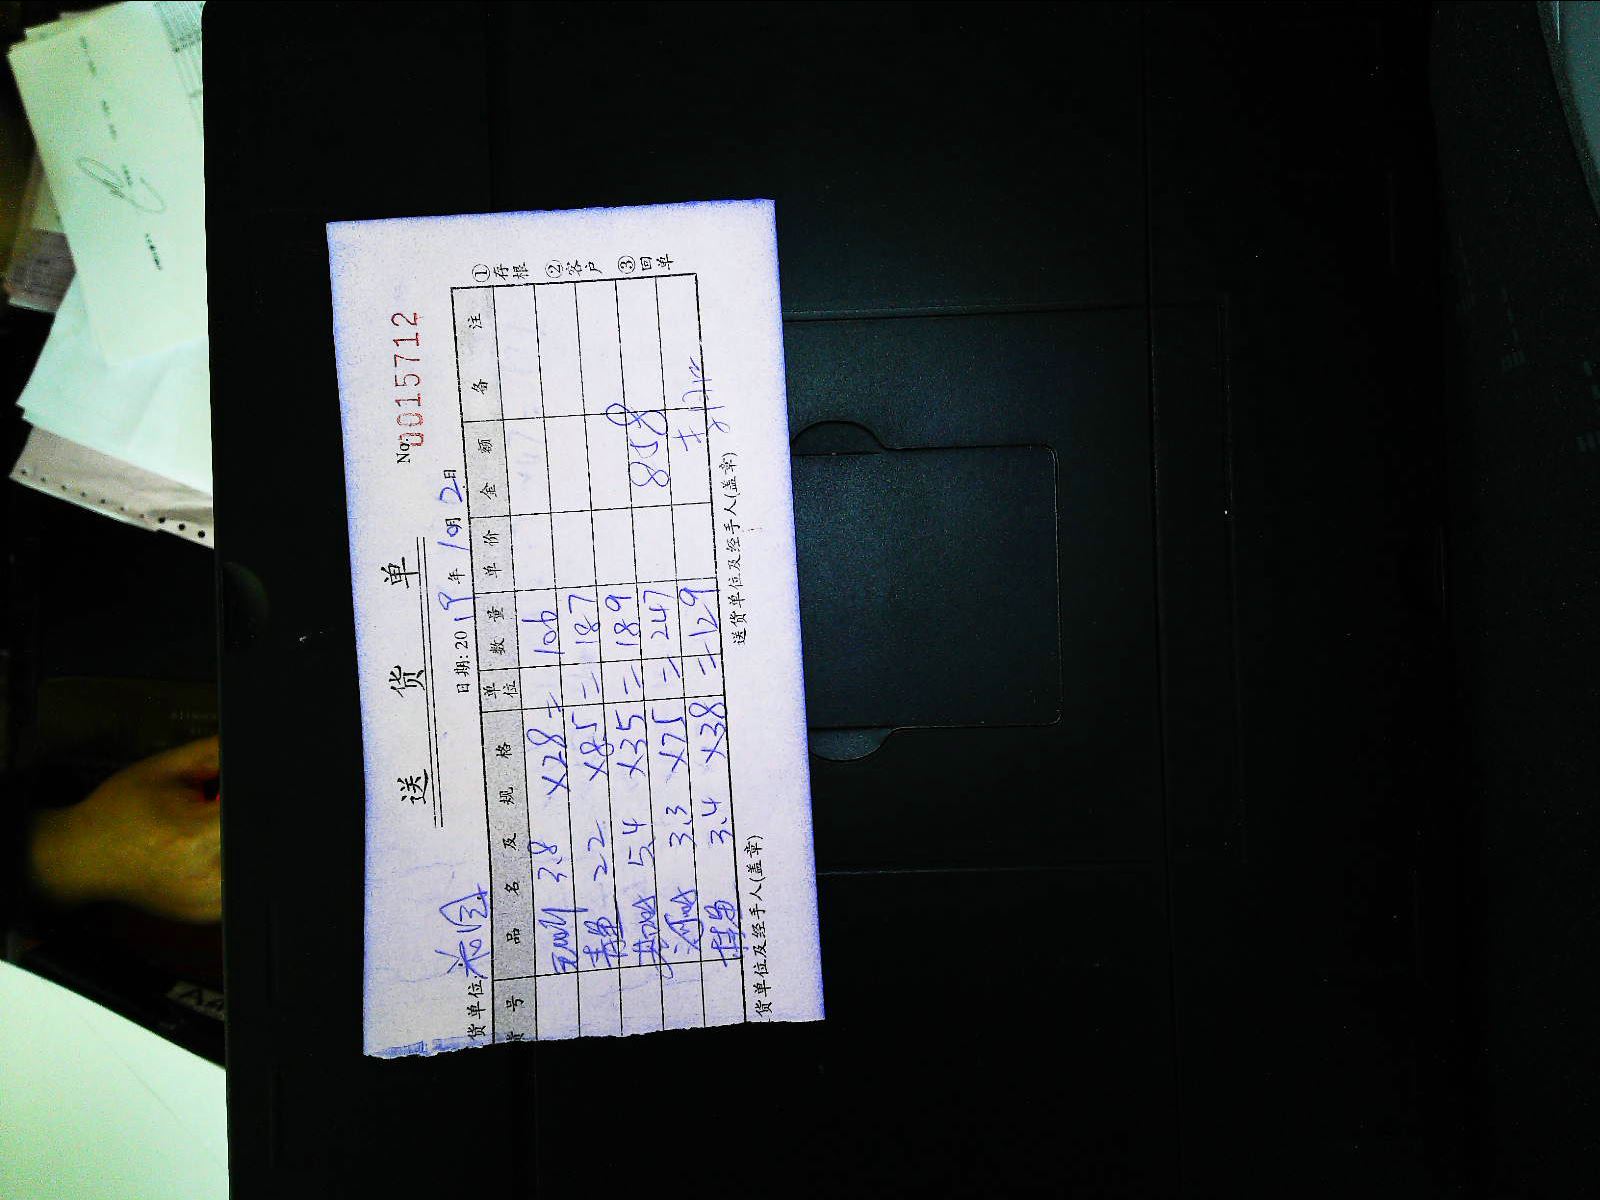 送 货 单
No. 0015712
货单位: 日期: 2019年10月2日
货 号 品 名 及 规 格 单位 数 量 单 价 金 额 备 注
3.8 ×28 = 106
青 22 ×8.5 = 187
5.4 ×35 = 189
3.3 ×75 = 247 858
3.4 ×38 = 129
货单位及经手人(盖章) 送货单位及经手人(盖章)
①存根 ②客户 ③回单